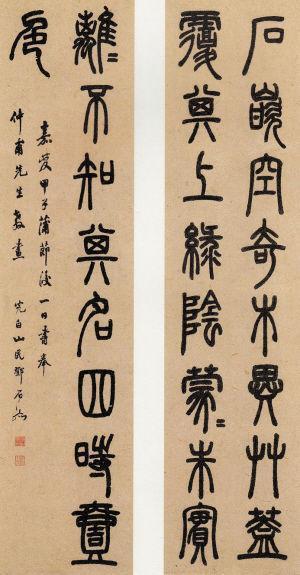 石嵌空奇木異艸蓋
覆其上綠陰蒙〻朱實
離〻不知其名四時壹
色
嘉慶甲子蒲節後一日書奉
仲甫先生教畫 完白山民鄧石如